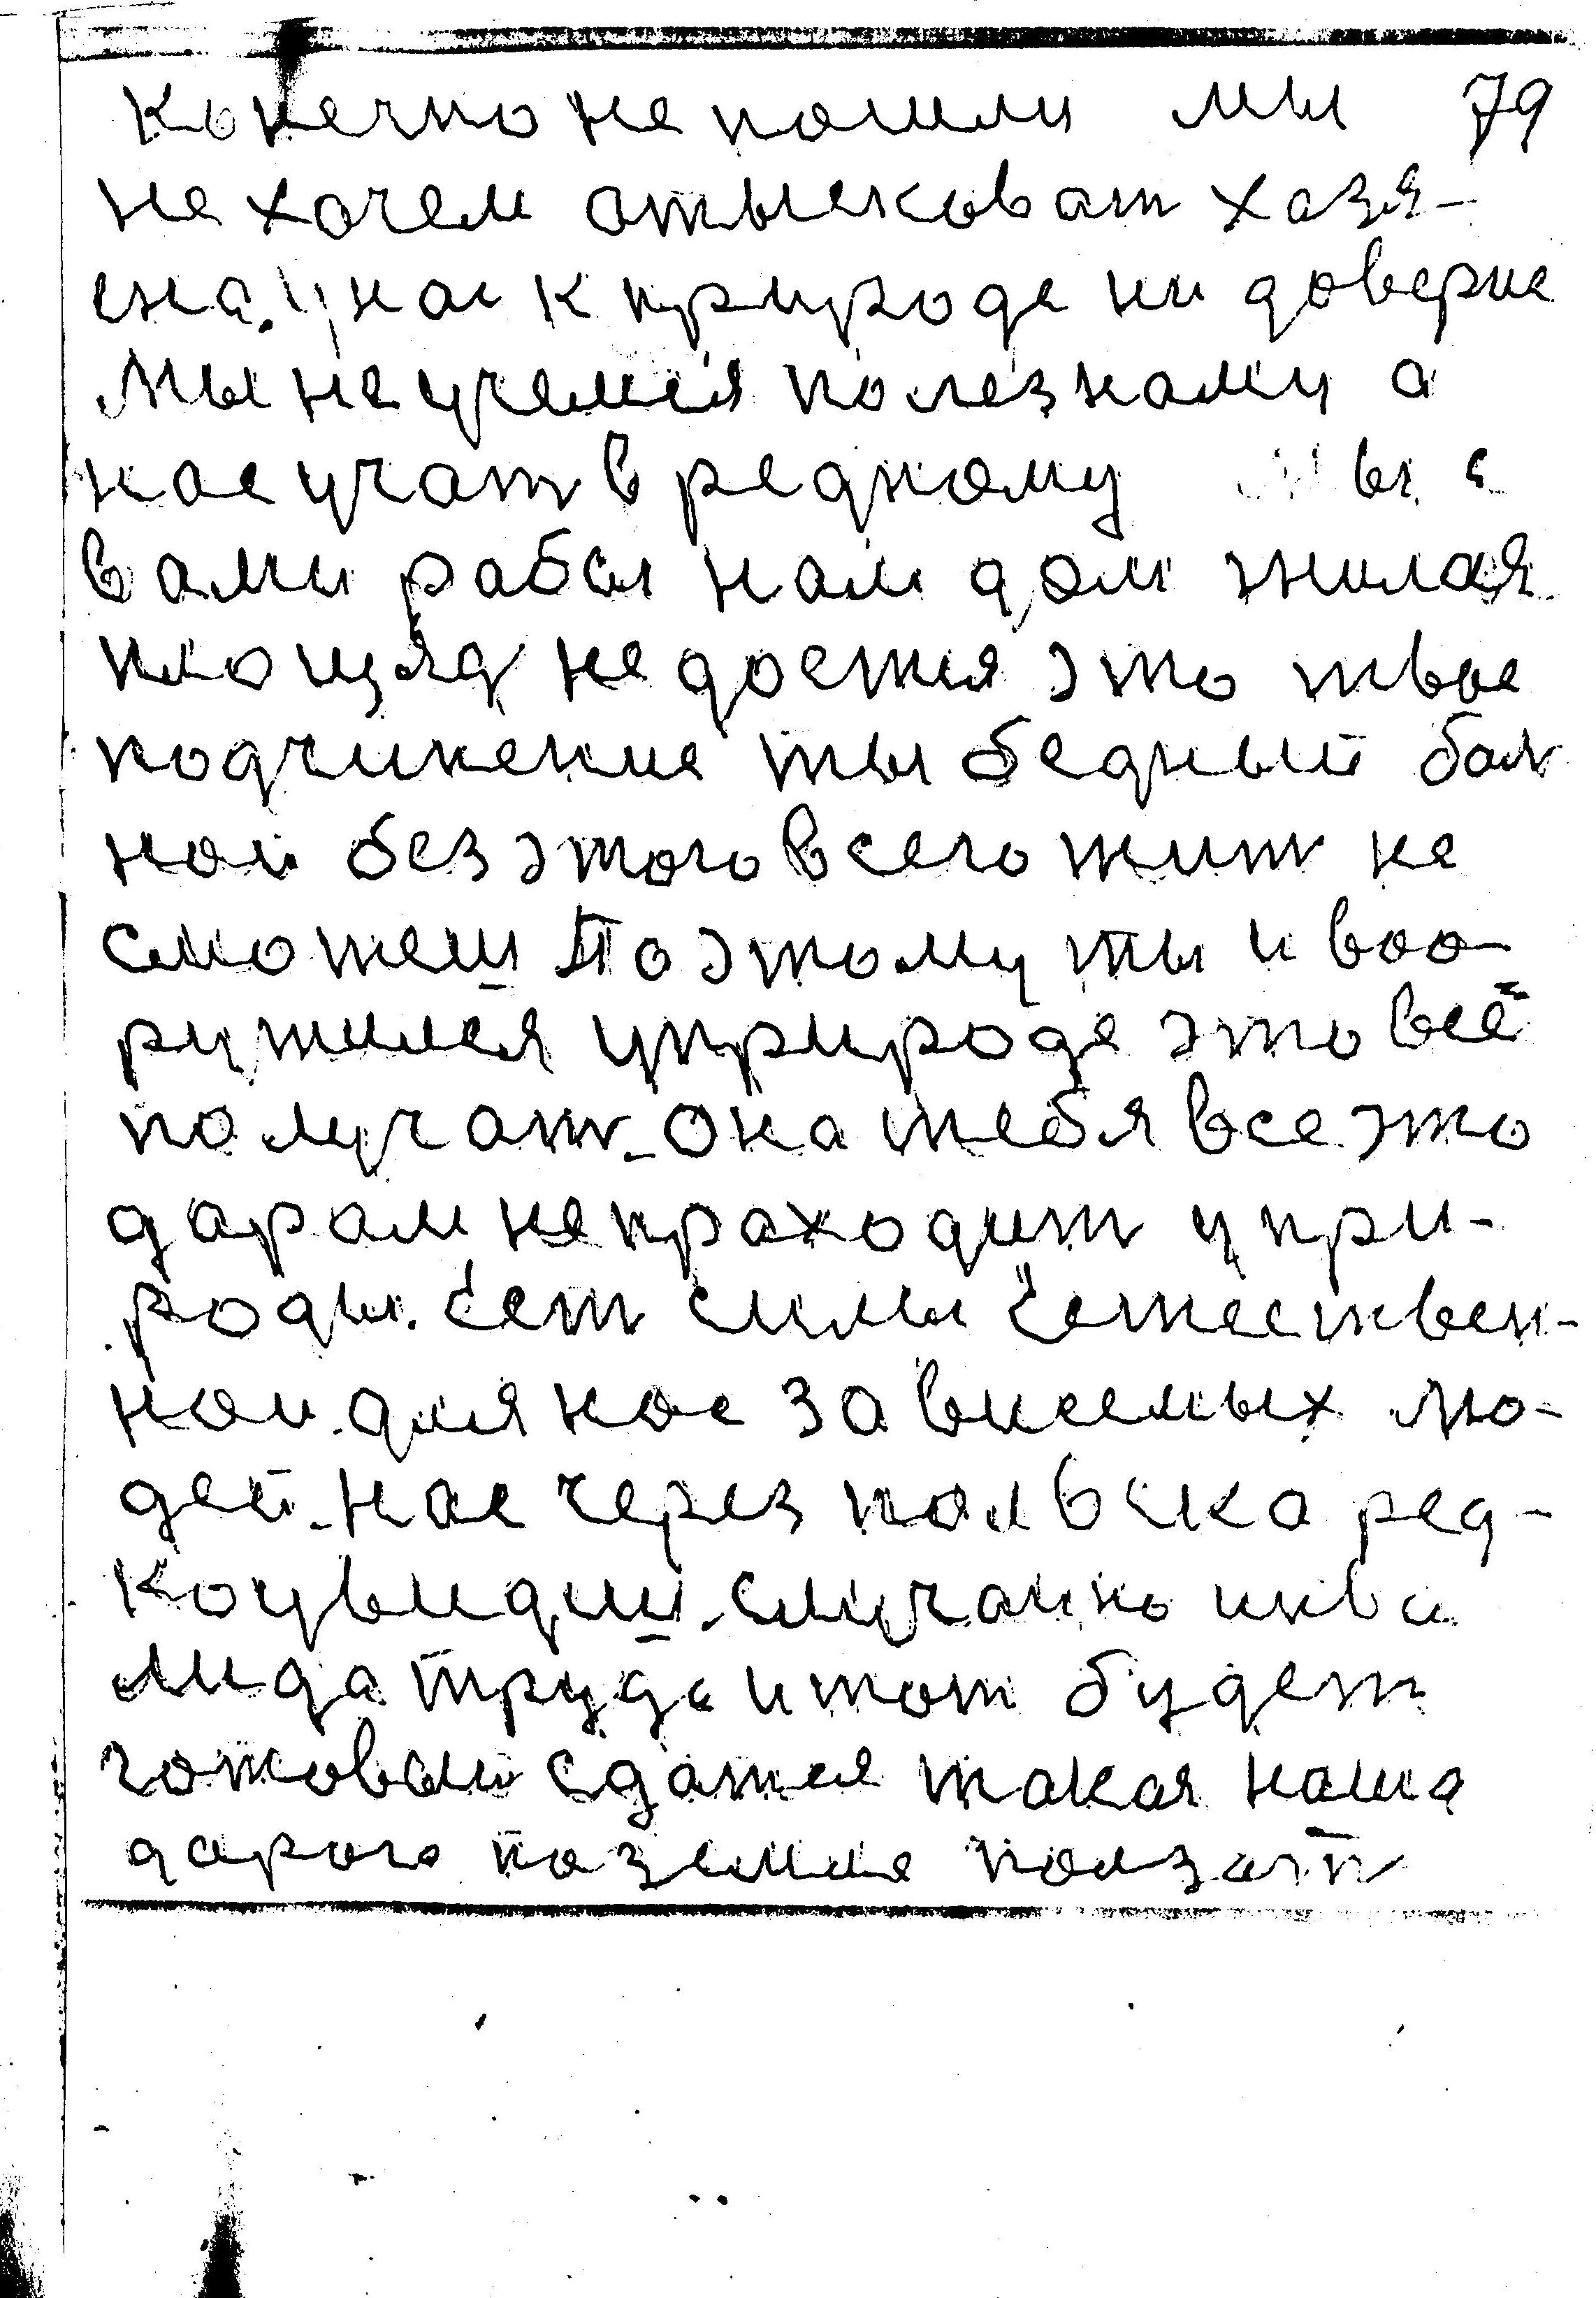 конечно не пошли мы 79
не хочем отысковат хазя-
ена. у нас к природе ни доверие
мы не учемся полезнаму а
нас учат вредному мы с
вами рабы нам дом жилая
площяд не доется это твое
подчинение ты бедный бол
ной без этого всего жит не
сможеш Поэтому ты и воо-
ружился у природе это всё
получат. Она тебя все это
даром не праходит у при-
роды. ест силы естествен-
наи для нас зависемых лю-
дей. нас через пол века ред-
ко увидиш. случаино инва
лида труда и тот будет
готовыи сдатся такая наша
дарога по земле ползат